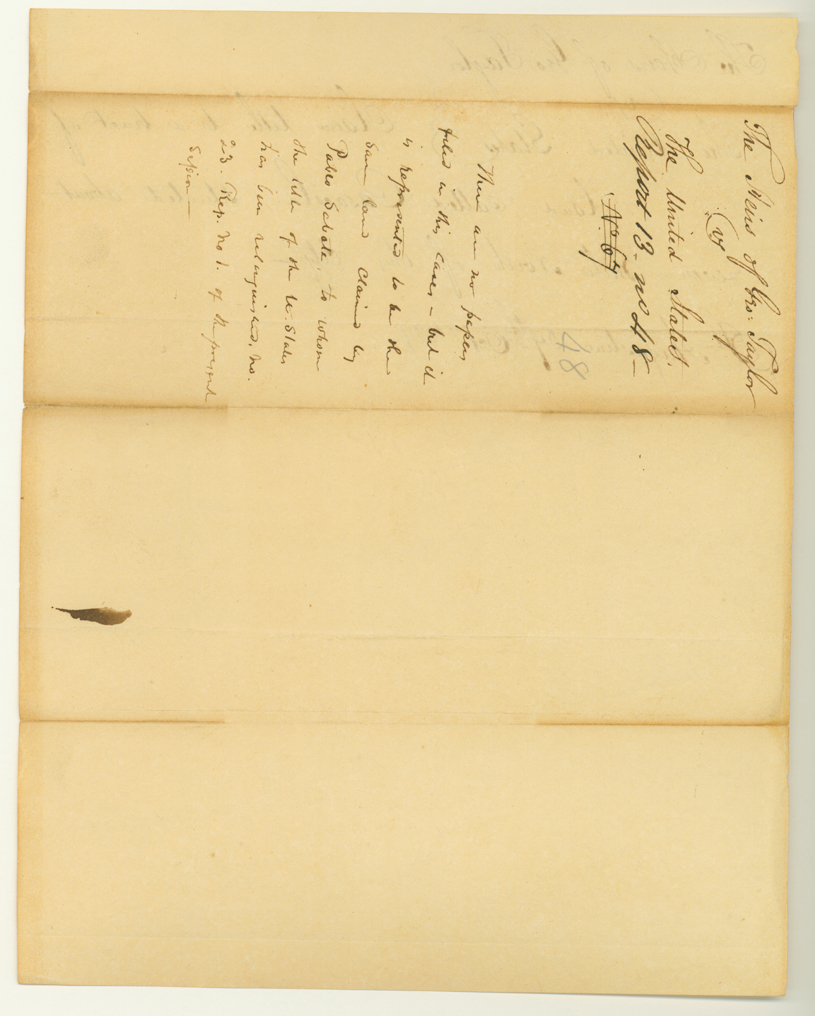 The Heirs of Geo: Taylor
vs
The United States.
Report 13. No 48—
No 67
48
There are no papers
filed in this case – but it
is represented to be the
Same land Claimed by
Pablo Sabate. to whom
the title of the U. States
has been relinquished. No.
23. Rep. No 1. of the present
Session—